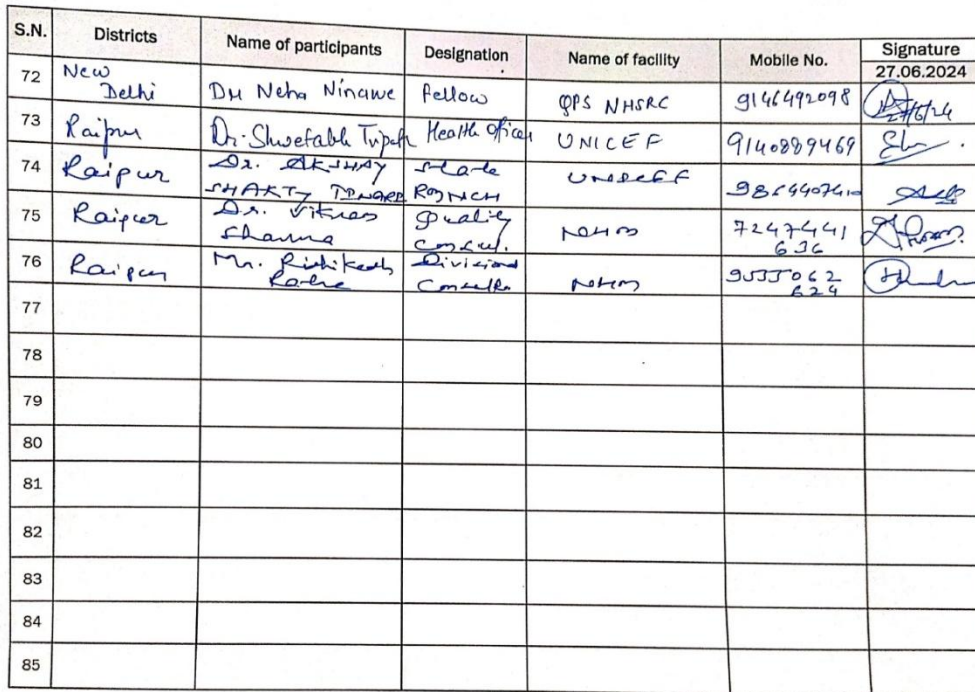 S.N. Districts Name of participants Designation Name of facility Mobile No. Signature
27.06.2024
72 New Delhi Dr Neha Ninawe Fellow QPS NHSRC 9146492098 27/6/24
73 Raipur Dr. Shwetabh Tripathi Health Officer UNICEF 9140889469
74 Raipur Dr. AKSHAY SHAKTI State UNICEF
75 Raipur Dr. Vikras Sharma Quality Consul. NHM 7247441 636
76 Raipur Mr. Rishikesh Division NHM 062 624
77
78
79
80
81
82
83
84
85